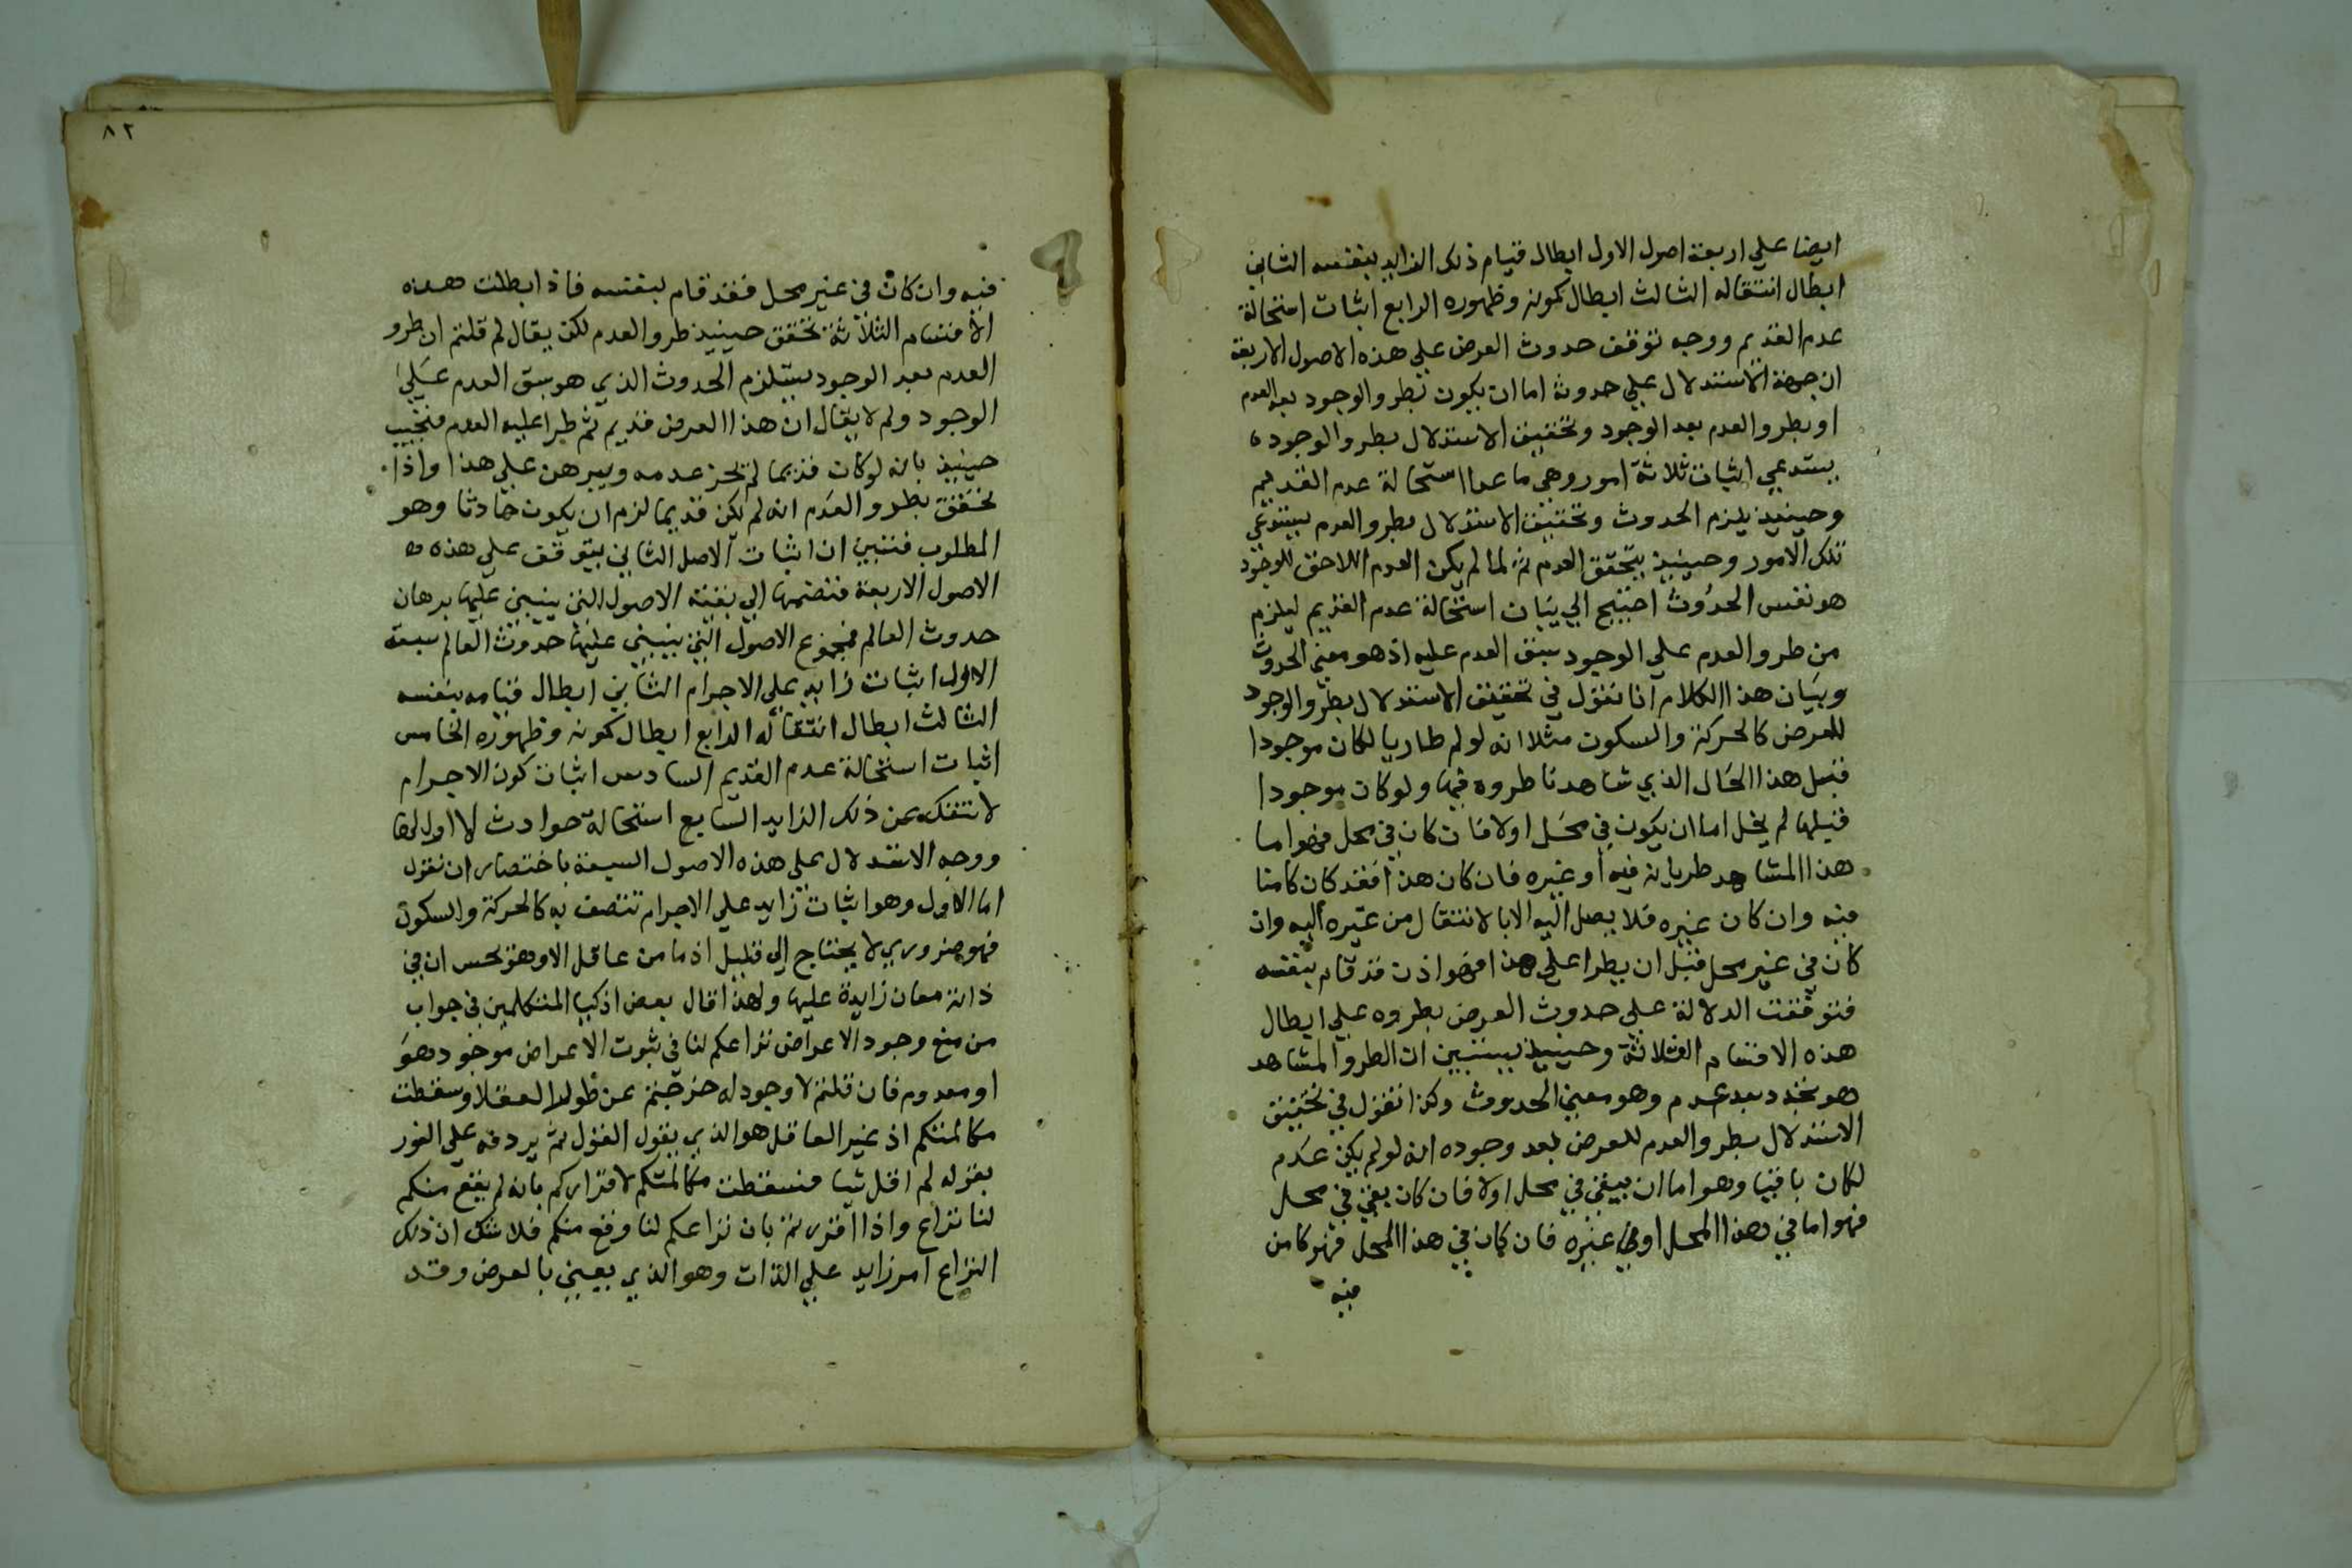 ايضا على اربعة اصول الاول ابطال قيام ذلك الزايد بنفسه الثاني
ابطال انتقاله الثالث ابطال كمونه وظهوره الرابع اثبات استحالة
عدم القديم ووجه توقف حدوث العرض علي هذه الاصول الاربعة
ان جهة الاستدلال علي حدوثه اما ان يكون بطرو الوجود بعد العدم
او بطرو العدم بعد الوجود وتحقيق الاستدلال بطرو الوجود
يستدعي اثبات ثلاثة امور وهي ما عدا استحالة عدم القديم
وحينيذ يلزم الحدوث وتحقيق الاستدلال بطرو العدم يستدعي
تلك الامور وحينيذ يتحقق العدم ثم لما لم يكن العدم اللاحق للوجود
هو نفس الحدوث احتيج الي بيان استحالة عدم القديم ليلزم
من طرو العدم علي الوجود سبق العدم عليه اذ هو معني الحدوث
وبيان هذا الكلام انا نقول في تحقيق الاستدلال بطرو الوجود
للعرض كالحركة والسكون مثلا انه لو لم طاريا لكان موجودا
قبل هذا الحال الذي شاهدنا طروه فيها ولو كان موجودا
قبلها لم يخل اما ان يكون في محل اولا فان كان في محل فهو اما
هذا المشاهد طريانه فيه او غيره فان كان هذا فقد كان كامنا
فيه وان كان غيره فلا يصل اليه الا بالانتقال من غيره اليه وان
كان في غير محل قبل ان يطرا علي هذا فهو اذن قد قام بنفسه
فتوقفت الدلالة علي حدوث العرض بطروه علي ابطال
هذه الاقسام الثلاثة وحينيذ يتبين ان الطرو المشاهد
هو تجدد بعد عدم وهو معني الحدوث وكذا نقول في تحقيق
الاستدلال بطرو العدم للعرض بعد وجوده انه لو لم يكن عدم
لكان باقيا وهو اما ان يبقي في محل اولا فان كان بقي في محل
فهو اما في هذا المحل او في غيره فان كان في هذا المحل فهو كامن
فيه
٨٢
فيه وان كان في غير محل فقد قام بنفسه فاذا بطلت هذه
الاقسام الثلاثة تحقق حينيذ طرو العدم لكن يقال لم قلتم ان طرو
العدم بعد الوجود يستلزم الحدوث الذي هو سبق العدم علي
الوجود ولم لا يقال ان هذا العرض قديم ثم طرا عليه العدم فنجيب
حينيذ بانه لو كان قديما لم يجز عدمه ويبرهن علي هذا واذا
تحقق بطرو العدم انه لم يكن قديما لزم ان يكون حادثا وهو
المطلوب فتبين ان اثبات الاصل الثاني يتوقف علي هذه
الاصول الاربعة فتضمها الي بقية الاصول التي ينبني عليها برهان
حدوث العالم فمجموع الاصول التي ينبني عليها حدوث العالم سبعة
الاول اثبات زايد علي الاجرام الثاني ابطال قيامه بنفسه
الثالث ابطال انتقاله الرابع ابطال كمونه وظهوره الخامس
اثبات استحالة عدم القديم السادس اثبات كون الاجرام
لا تنفك عن ذلك الزايد السابع استحالة حوادث لا اول لها
ووجه الاستدلال علي هذه الاصول السبعة باختصار ان نقول
اما الاول وهو اثبات زايد علي الاجرام تتصف به كالحركة والسكون
فهو ضروري لا يحتاج الي دليل اذ ما من عاقل الا وهو يحس ان في
ذاته معان زايدة عليها ولهذا قال بعض اذكيا المتكلمين في جواب
من منع وجود الاعراض نزاعكم لنا في ثبوت الاعراض موجود هو
او معدوم فان قلتم لا وجود له خرجتم عن طور العقلا وسقطت
مكالمتكم اذ غير العاقل هو الذي يقول القول ثم يردفه علي الفور
بقوله لم اقل شيا فسقطت مكالمتكم لاقراركم بانه لم يقع منكم
لنا نزاع واذا اقررتم بان نزاعكم لنا وقع منكم فلا شك ان ذلك
النزاع امر زايد علي الذات وهو الذي يعني بالعرض وقد